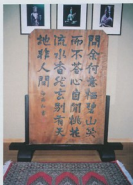 問余何意栖碧山笑
而不答心自閑桃花
流水杳然去別有天
地非人間